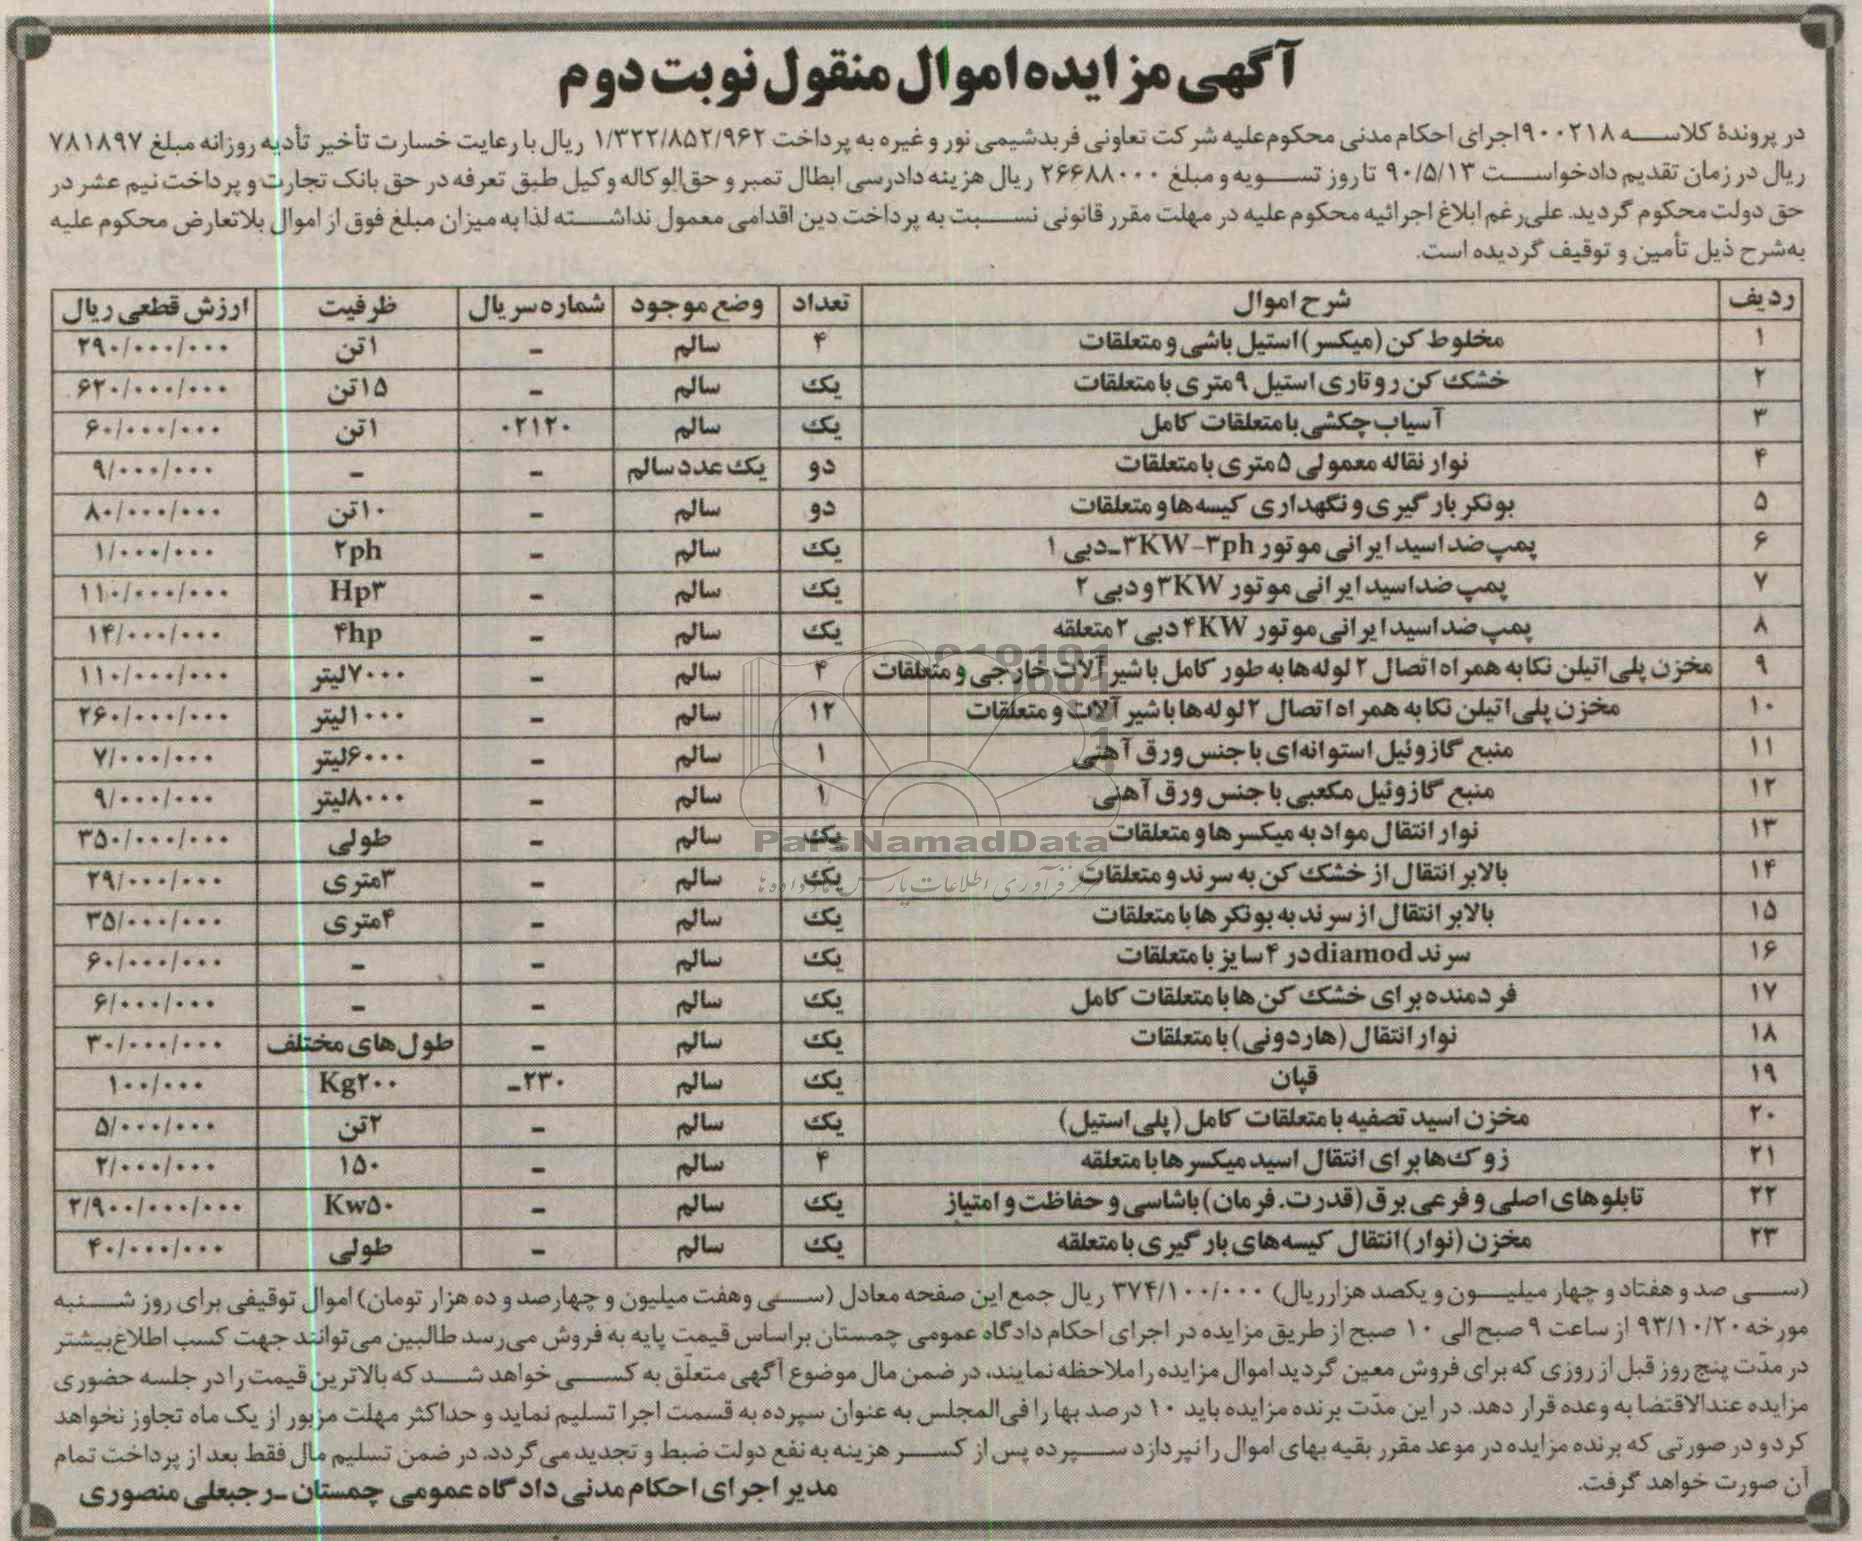 آگهی مزایده اموال منقول نوبت دوم
در پروندهٔ کلاسه ۹۰۰۲۱۸ اجرای احکام مدنی محکوم‌علیه شرکت تعاونی فربدشیمی نور و غیره به پرداخت ۱/۳۲۲/۸۵۲/۹۶۲ ریال با رعایت خسارت تأخیر تأدیه روزانه مبلغ ۷۸۱۸۹۷
ریال در زمان تقدیم دادخواست ۹۰/۵/۱۳ تا روز تسویه و مبلغ ۲۶۶۸۸۰۰۰ ریال هزینه دادرسی ابطال تمبر و حق‌الوکاله وکیل طبق تعرفه در حق بانک تجارت و پرداخت نیم عشر در
حق دولت محکوم گردید. علی‌رغم ابلاغ اجرائیه محکوم علیه در مهلت مقرر قانونی نسبت به پرداخت دین اقدامی معمول نداشته لذا به میزان مبلغ فوق از اموال بلاتعارض محکوم علیه
به‌شرح ذیل تأمین و توقیف گردیده است.
ردیف شرح اموال تعداد وضع موجود شماره سریال ظرفیت ارزش قطعی ریال
۱ مخلوط کن (میکسر) استیل باشی و متعلقات ۴ سالم - ۱تن ۲۹۰/۰۰۰/۰۰۰
۲ خشک کن روتاری استیل ۹متری با متعلقات یک سالم - ۱۵تن ۶۲۰/۰۰۰/۰۰۰
۳ آسیاب چکشی با متعلقات کامل یک سالم ۰۲۱۲۰ ۱تن ۶۰/۰۰۰/۰۰۰
۴ نوار نقاله معمولی ۵متری با متعلقات دو یک عدد سالم - - ۹/۰۰۰/۰۰۰
۵ بونکر بارگیری و نگهداری کیسه‌ها و متعلقات دو سالم - ۱۰تن ۸۰/۰۰۰/۰۰۰
۶ پمپ ضد اسید ایرانی موتور ۳KW-۳ph-دبی ۱ یک سالم - ۲ph ۱/۰۰۰/۰۰۰
۷ پمپ ضداسید ایرانی موتور ۳KW و دبی ۲ یک سالم - Hp۳ ۱۱۰/۰۰۰/۰۰۰
۸ پمپ ضداسید ایرانی موتور ۴KW دبی ۲ متعلقه یک سالم - ۴hp ۱۴/۰۰۰/۰۰۰
۹ مخزن پلی اتیلن تکا به همراه اتصال ۲ لوله‌ها به طور کامل با شیرآلات خارجی و متعلقات ۴ سالم - ۷۰۰۰لیتر ۱۱۰/۰۰۰/۰۰۰
۱۰ مخزن پلی‌اتیلن تکا به همراه اتصال ۲لوله‌ها با شیرآلات و متعلقات ۱۲ سالم - ۱۰۰۰لیتر ۲۶۰/۰۰۰/۰۰۰
۱۱ منبع گازوئیل استوانه‌ای با جنس ورق آهنی ۱ سالم - ۶۰۰۰لیتر ۷/۰۰۰/۰۰۰
۱۲ منبع گازوئیل مکعبی با جنس ورق آهنی ۱ سالم - ۸۰۰۰لیتر ۹/۰۰۰/۰۰۰
۱۳ نوار انتقال مواد به میکسرها و متعلقات یک سالم - طولی ۳۵۰/۰۰۰/۰۰۰
۱۴ بالابر انتقال از خشک کن به سرند و متعلقات یک سالم - ۳متری ۲۹/۰۰۰/۰۰۰
۱۵ بالابر انتقال از سرند به بونکرها با متعلقات یک سالم - ۴متری ۳۵/۰۰۰/۰۰۰
۱۶ سرند diamod در ۴ سایز با متعلقات یک سالم - - ۶۰/۰۰۰/۰۰۰
۱۷ فر دمنده برای خشک کن‌ها با متعلقات کامل یک سالم - - ۶/۰۰۰/۰۰۰
۱۸ نوار انتقال (هاردونی) با متعلقات یک سالم - طول‌های مختلف ۳۰/۰۰۰/۰۰۰
۱۹ قپان یک سالم ۲۳۰- Kg۲۰۰ ۱۰۰/۰۰۰
۲۰ مخزن اسید تصفیه با متعلقات کامل (پلی استیل) یک سالم - ۲تن ۵/۰۰۰/۰۰۰
۲۱ زوک‌ها برای انتقال اسید میکسرها با متعلقه ۴ سالم - ۱۵۰ ۲/۰۰۰/۰۰۰
۲۲ تابلوهای اصلی و فرعی برق (قدرت. فرمان) با شاسی و حفاظت و امتیاز یک سالم - Kw۵۰ ۲/۹۰۰/۰۰۰/۰۰۰
۲۳ مخزن (نوار) انتقال کیسه‌های بارگیری با متعلقه یک سالم - طولی ۴۰/۰۰۰/۰۰۰
(سی صد و هفتاد و چهار میلیون و یکصد هزار ریال) ۳۷۴/۱۰۰/۰۰۰ ریال جمع این صفحه معادل (سی و هفت میلیون و چهارصد و ده هزار تومان) اموال توقیفی برای روز شنبه
مورخه ۹۳/۱۰/۲۰ از ساعت ۹ صبح الی ۱۰ صبح از طریق مزایده در اجرای احکام دادگاه عمومی چمستان براساس قیمت پایه به فروش می‌رسد طالبین می‌توانند جهت کسب اطلاع بیشتر
در مدّت پنج روز قبل از روزی که برای فروش معین گردید اموال مزایده را ملاحظه نمایند، در ضمن مال موضوع آگهی متعلّق به کسی خواهد شد که بالاترین قیمت را در جلسه حضوری
مزایده عندالاقتضا به وعده قرار دهد. در این مدّت برنده مزایده باید ۱۰ درصد بها را فی‌المجلس به عنوان سپرده به قسمت اجرا تسلیم نماید و حداکثر مهلت مزبور از یک ماه تجاوز نخواهد
کرد و در صورتی که برنده مزایده در موعد مقرر بقیه بهای اموال را نپردازد سپرده پس از کسر هزینه به نفع دولت ضبط و تجدید می‌گردد. در ضمن تسلیم مال فقط بعد از پرداخت تمام
آن صورت خواهد گرفت.
مدیر اجرای احکام مدنی دادگاه عمومی چمستان ـ رجبعلی منصوری
ParsNamadData